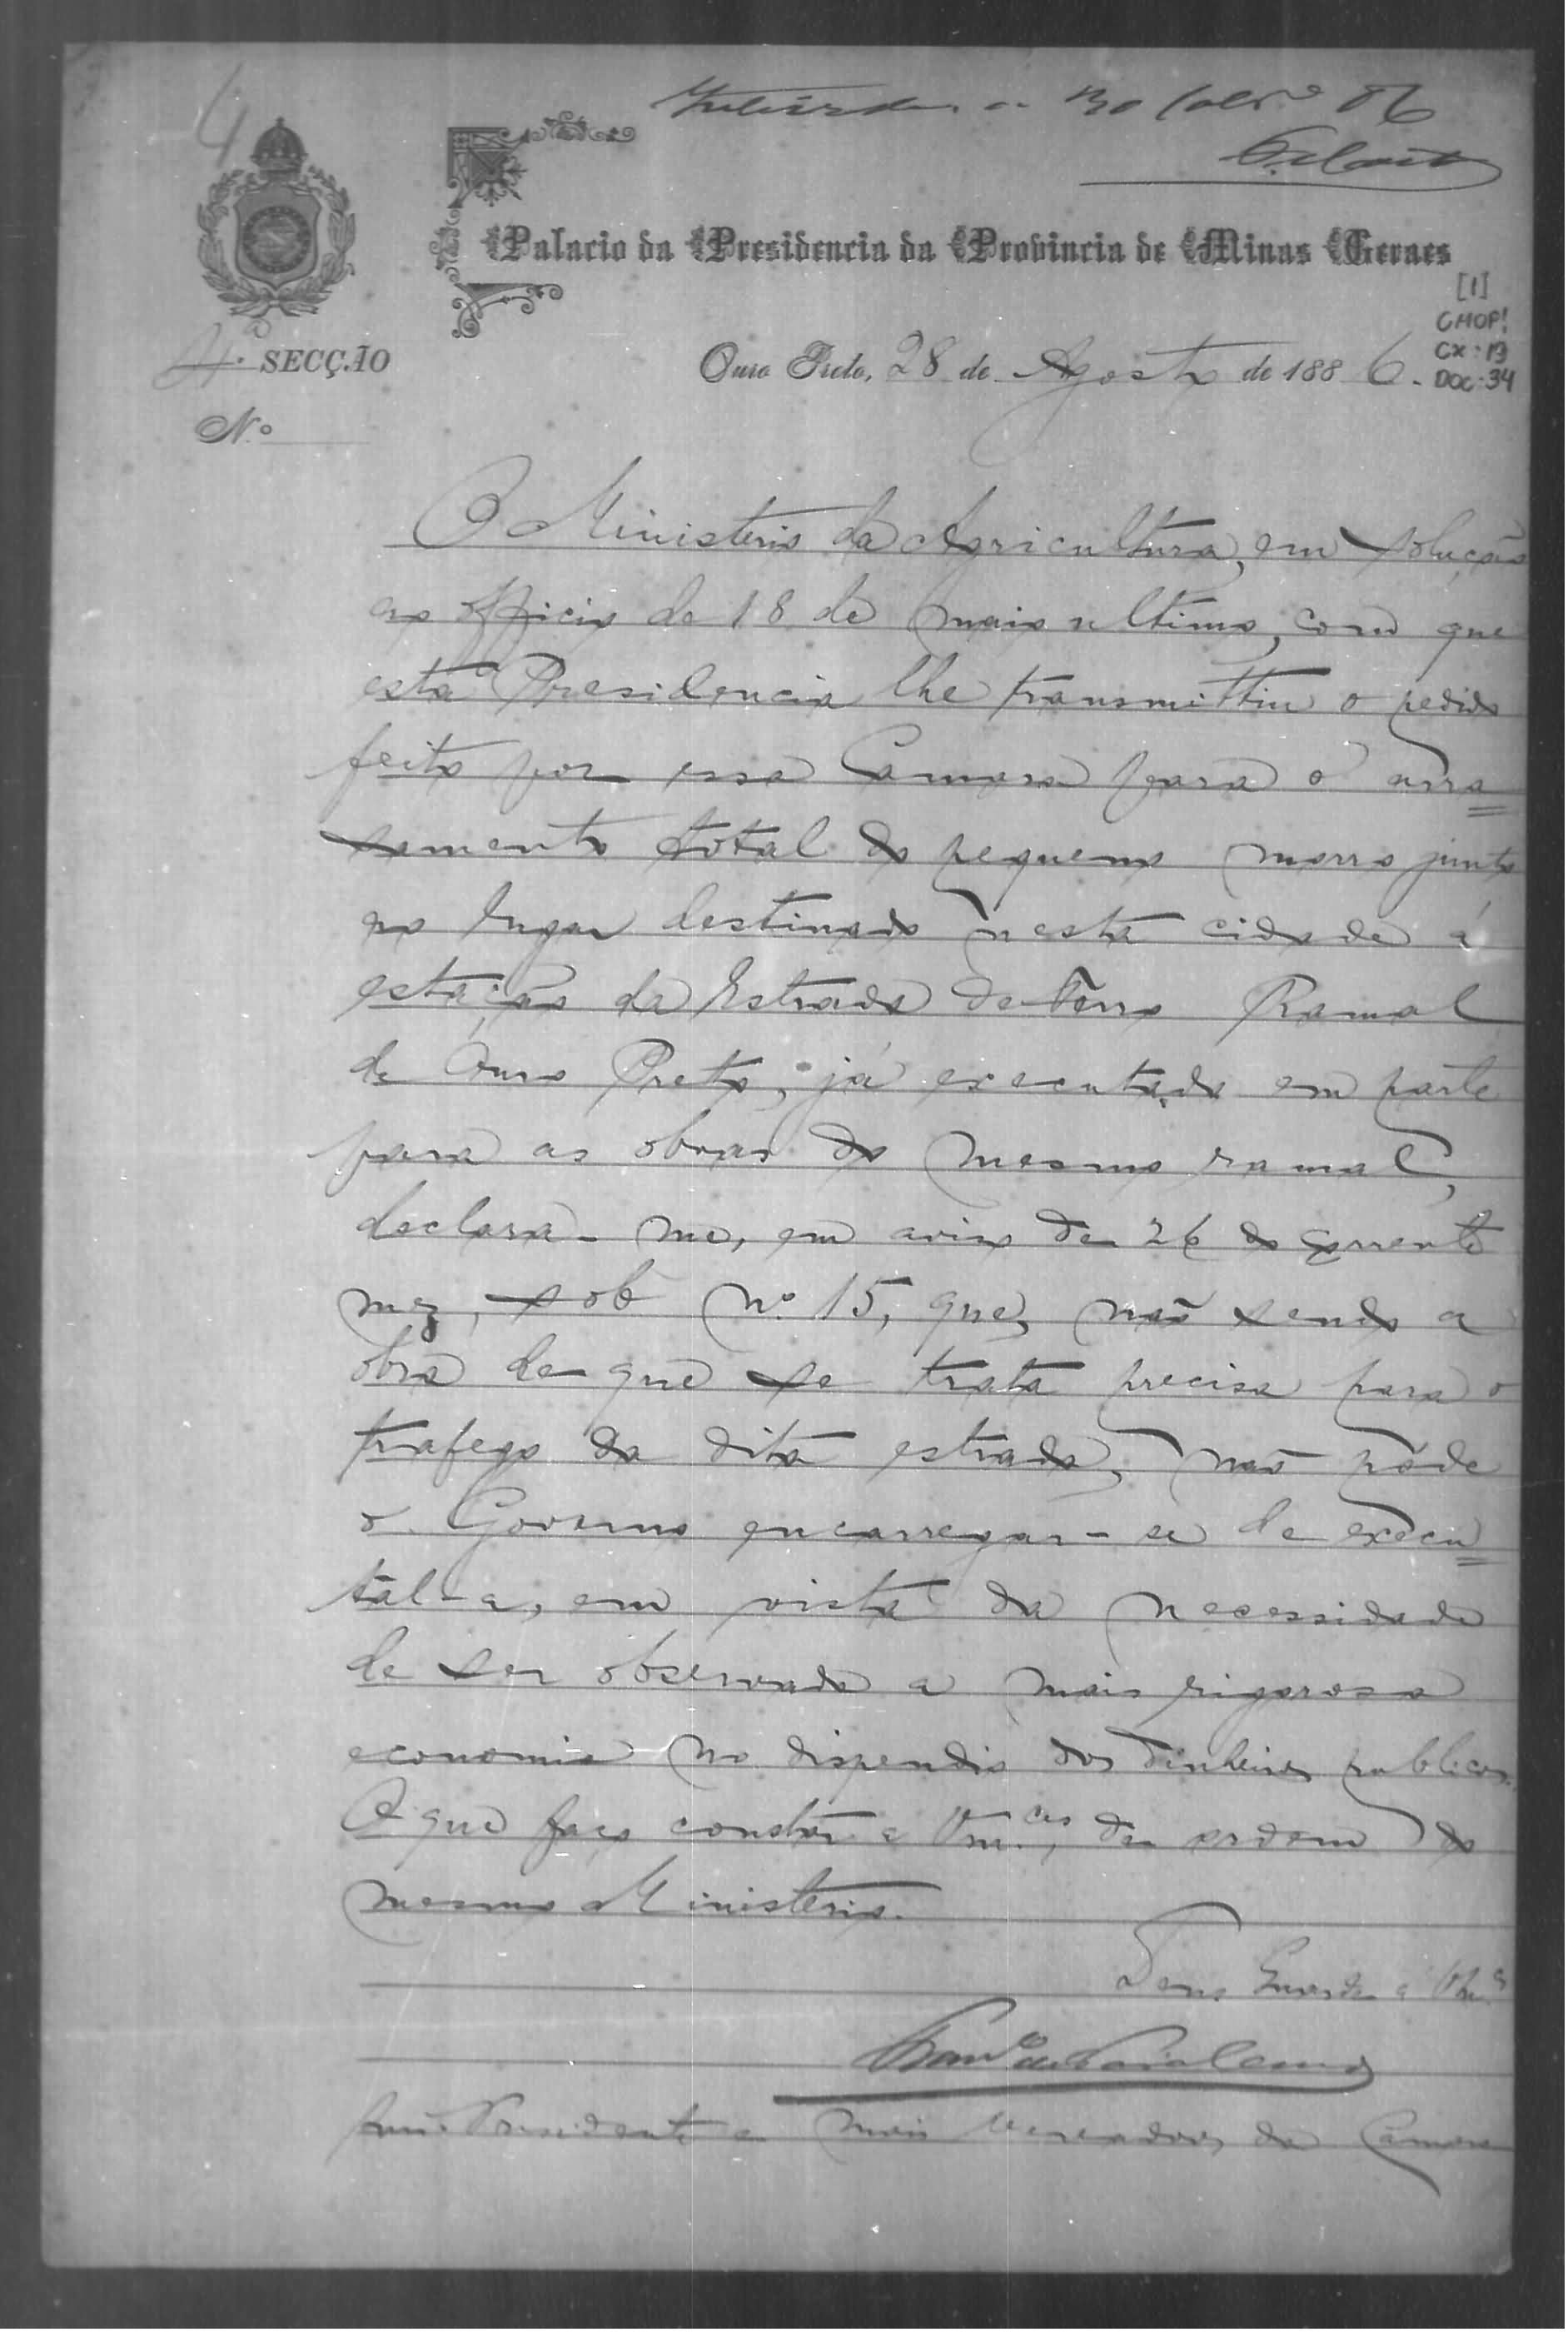 4
Palacio da Presidencia da Provincia de Minas Geraes
[1]
CMOP!
CX: 13
DOC: 34
4ª SECÇÃO
Ouro Preto, 28 de Agosto de 1886.
Nº
O Ministerio da Agricultura, em solução
ao officio de 18 de maio ultimo, com que
esta Presidencia lhe transmittiu o pedido
feito por essa Camara para o arra=
samento total do pequeno morro junto
ao lugar destinado nesta cidade á
estação da Estrada de Ferro Ramal
de Ouro Preto, já executado em parte
para as obras do mesmo ramal,
declara-me, em aviso de 26 do corrente
mez, sob nº 15, que, não sendo a
obra de que se trata precisa para o
trafego da dita estrada, não póde
o Governo encarregar-se de execu=
tal-a, em vista da necessidade
de ser observada a mais rigorosa
economia no dispendio dos dinheiros publicos.
O que faço constar a Vm.ces, de ordem do
mesmo Ministerio.
Deus Guarde a Vm.ces
Presidente e mais Vereadores da Camara